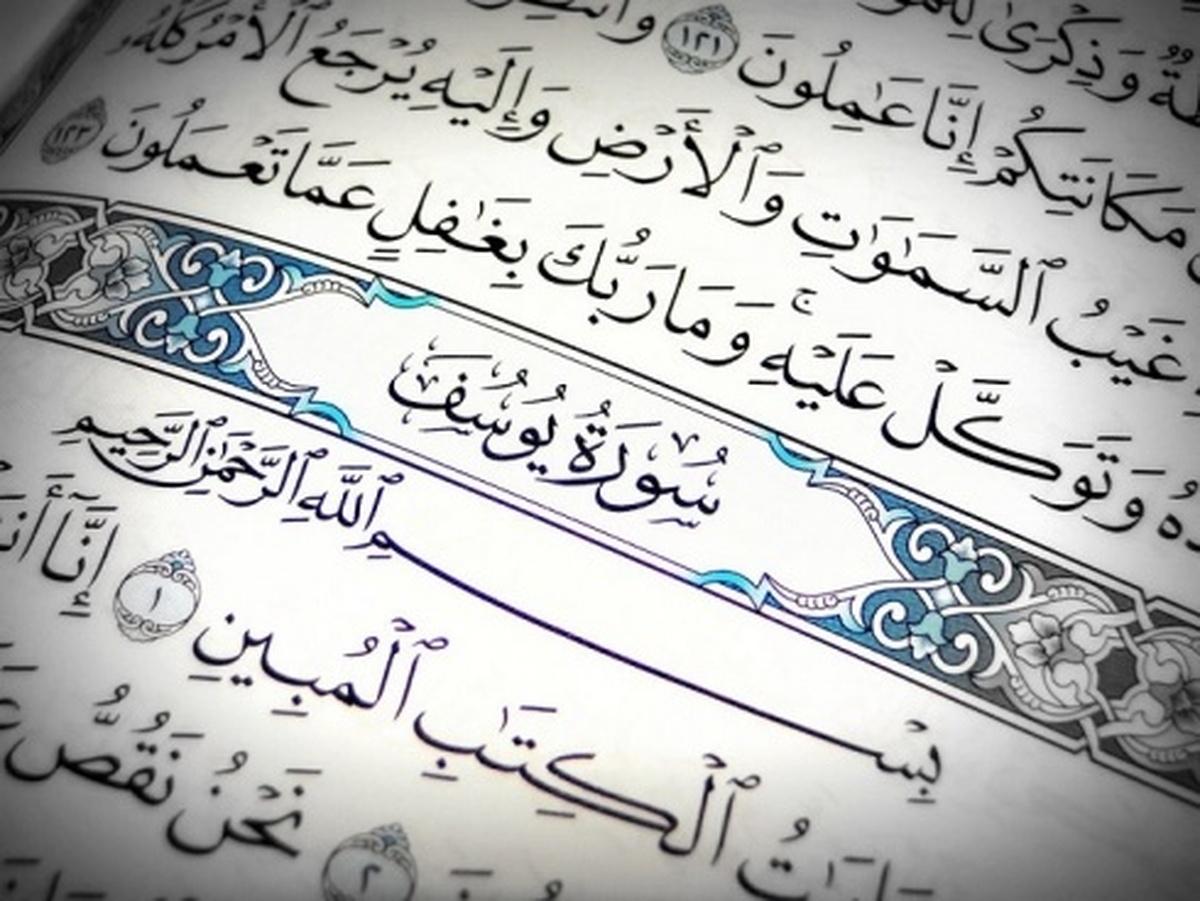 وَذِكْرَىٰ
مَكَانَتِكُمْ إِنَّا عَـٰمِلُونَ ١٢١
غَيْبُ ٱلسَّمَـٰوَٰتِ وَٱلْأَرْضِ وَإِلَيْهِ يُرْجَعُ ٱلْأَمْرُ كُلُّهُۥ
وَتَوَكَّلْ عَلَيْهِ ۚ وَمَا رَبُّكَ بِغَـٰفِلٍ عَمَّا تَعْمَلُونَ ١٢٣
سُورَةُ يُوسُفَ
بِسْمِ ٱللَّهِ ٱلرَّحْمَـٰنِ ٱلرَّحِيمِ
ٱلْكِتَـٰبِ ٱلْمُبِينِ ١ إِنَّآ
٢ نَحْنُ نَقُصُّ